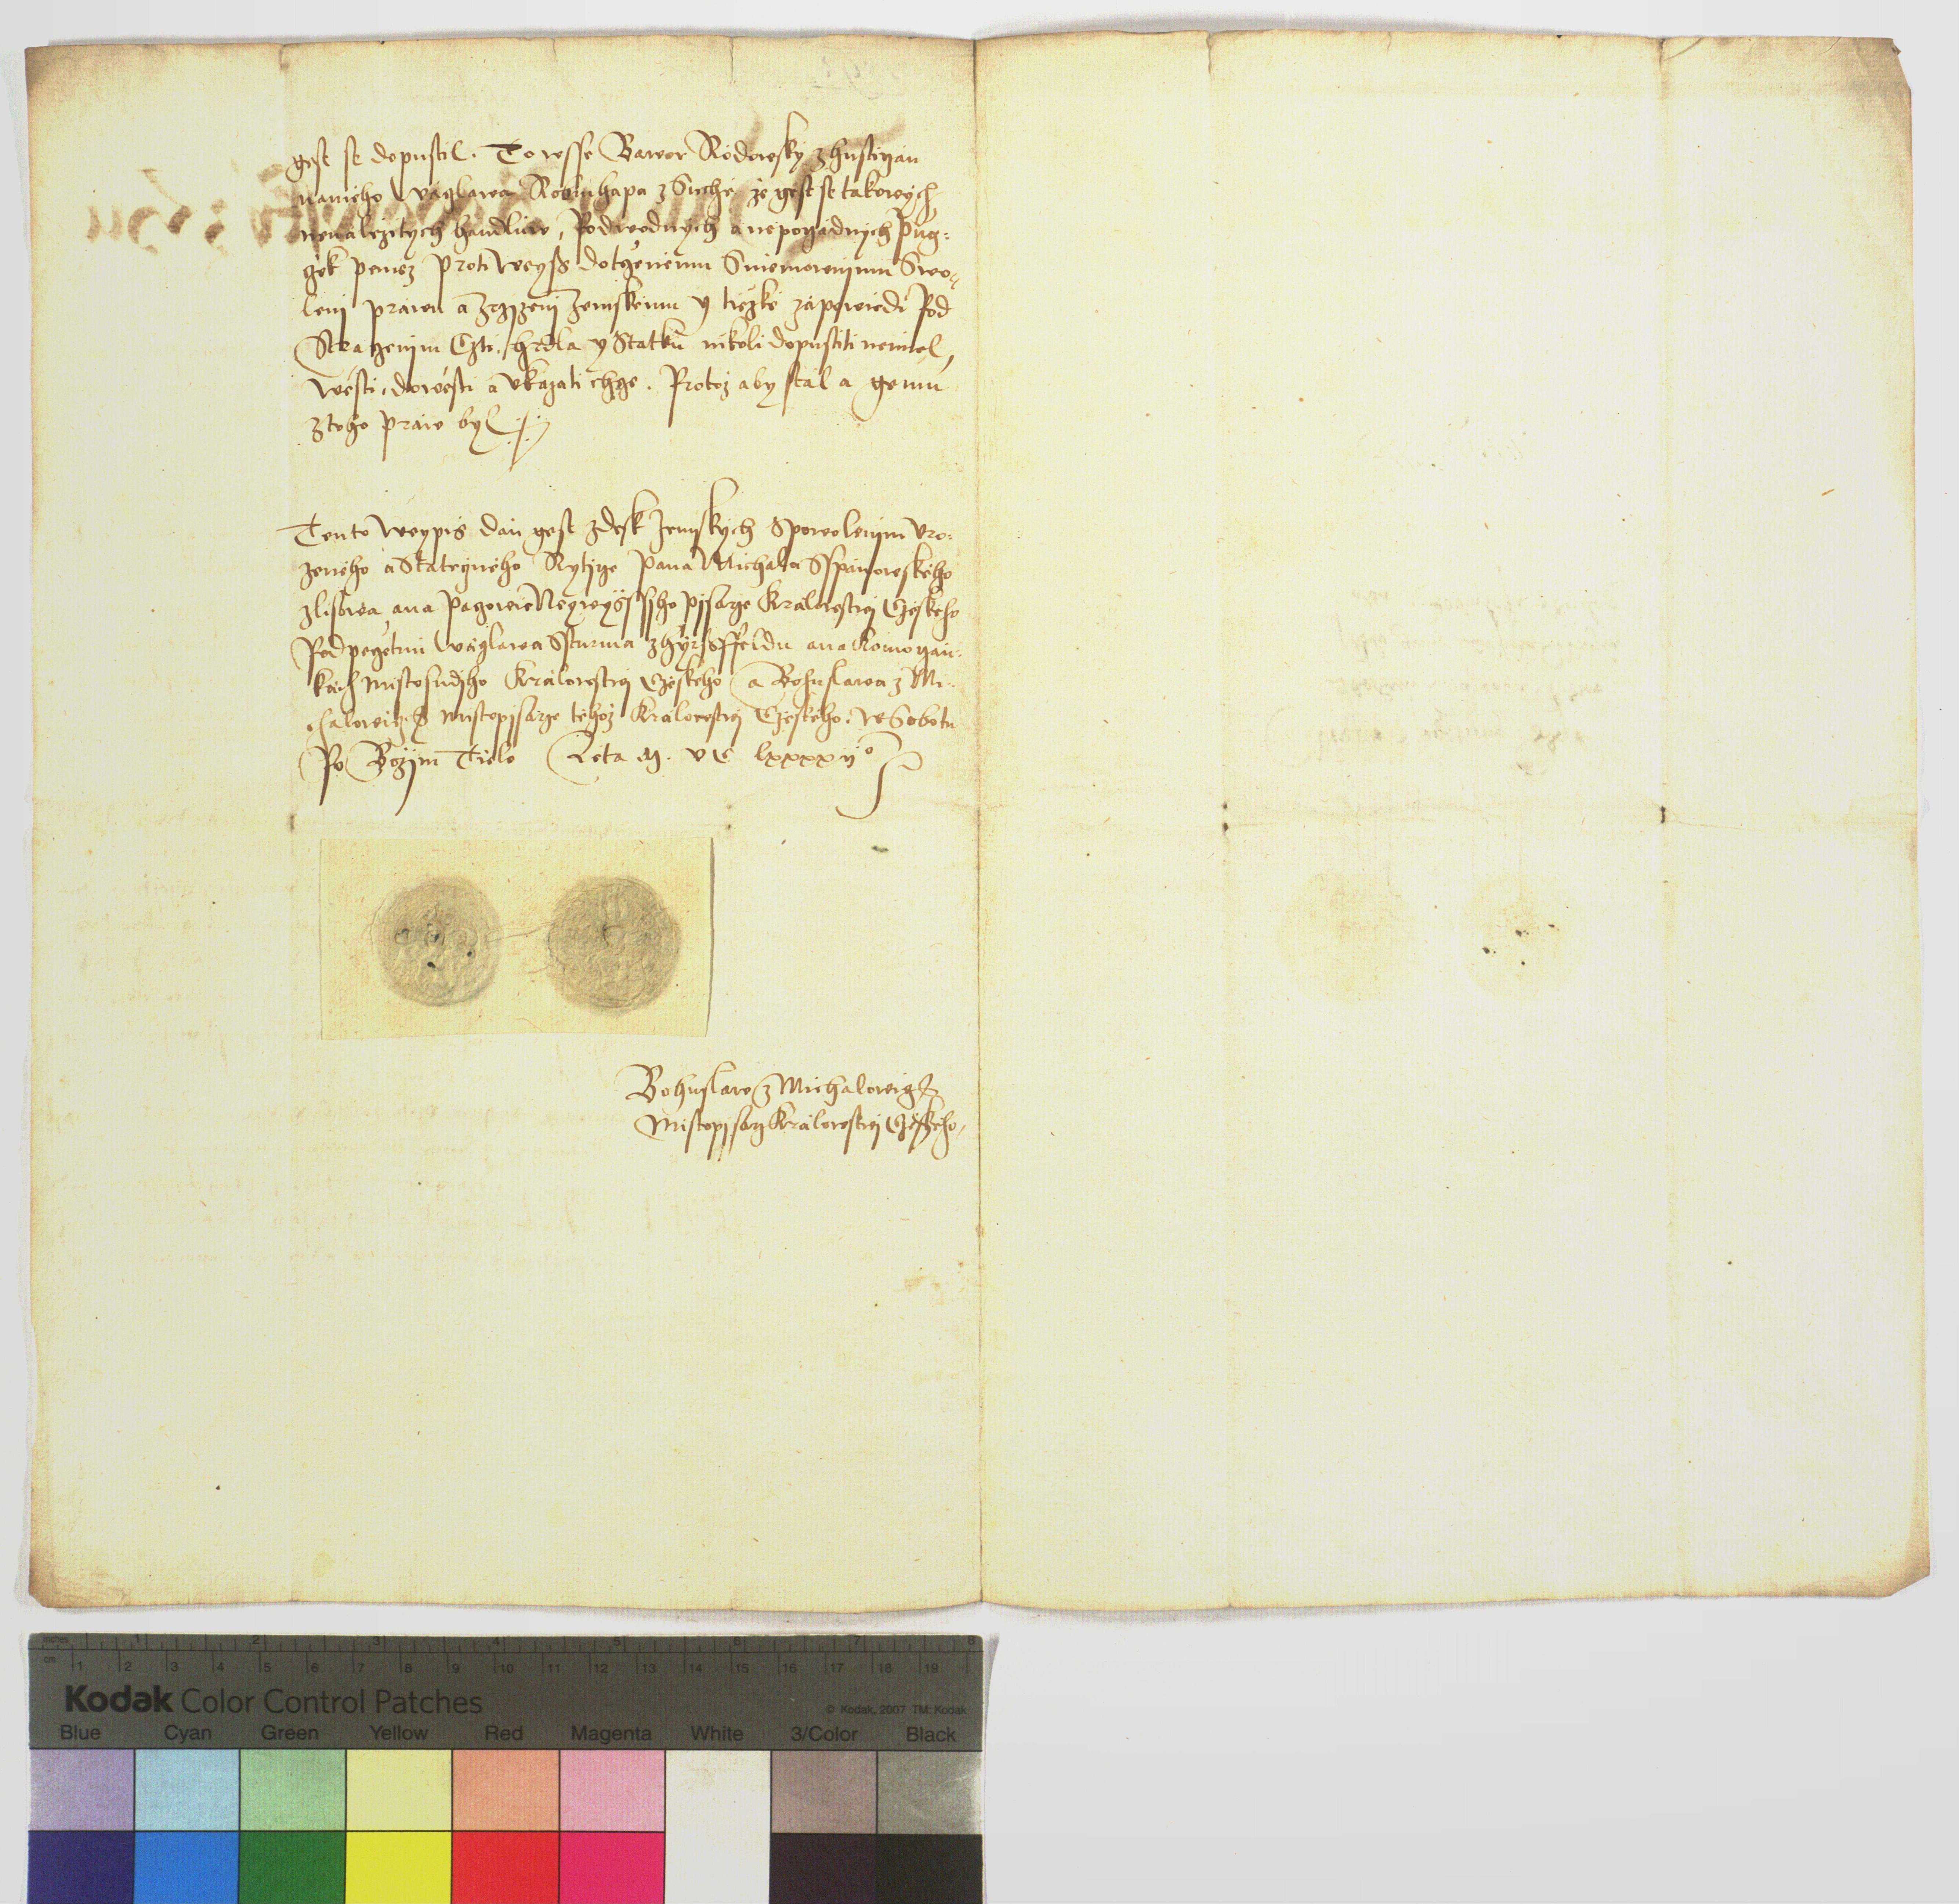 gest se dopustil. To wsse Bawor Rodowsky z Hustirzan
na niého Waczlawa Robmhapa z Suché ze gest se takowych
nenalezitych handluw, Podwodnych a neporzadnych Pug:
gék peněz proti weyss dotczenému Sniemownimu Swo-
leni prawu a zrzizeni zemskému y tiezké zapowiedi Pod
Stracenim Czti, hrdla y Statku nikoli dopustiti nemiel,
westi, dowésti a vkazati chcze. Protoz aby stal a gemu
z toho praw byl
Tento weypis dan gest z desk zemskych S powolenim vro:
zeného a Stateczného Rytirze Pana Michala Sspanowského
z Lisowa, a na Paczowie Neywyssiho pisarze Kralowstwi Czeského
Pod peczetmi Waczlawa Ssturma z Hyrssffeldu a na Komorzan:
kach mistosudiho Kralowstwi Czeského a Bohuslawa z Mi-
chalowicz mistopisarze téhoz Kralowstwi Czeského. W Sobotu
Po Bozim Tiele Léta M. v C lxxxxij°
Bohuslaw z Michalowicz
Mistopisarz Kralowstwi Czeského
inches 1 2 3 4 5 6 7 8
cm 1 2 3 4 5 6 7 8 9 10 11 12 13 14 15 16 17 18 19
Kodak Color Control Patches
© Kodak, 2007 TM: Kodak
Blue Cyan Green Yellow Red Magenta White 3/Color Black